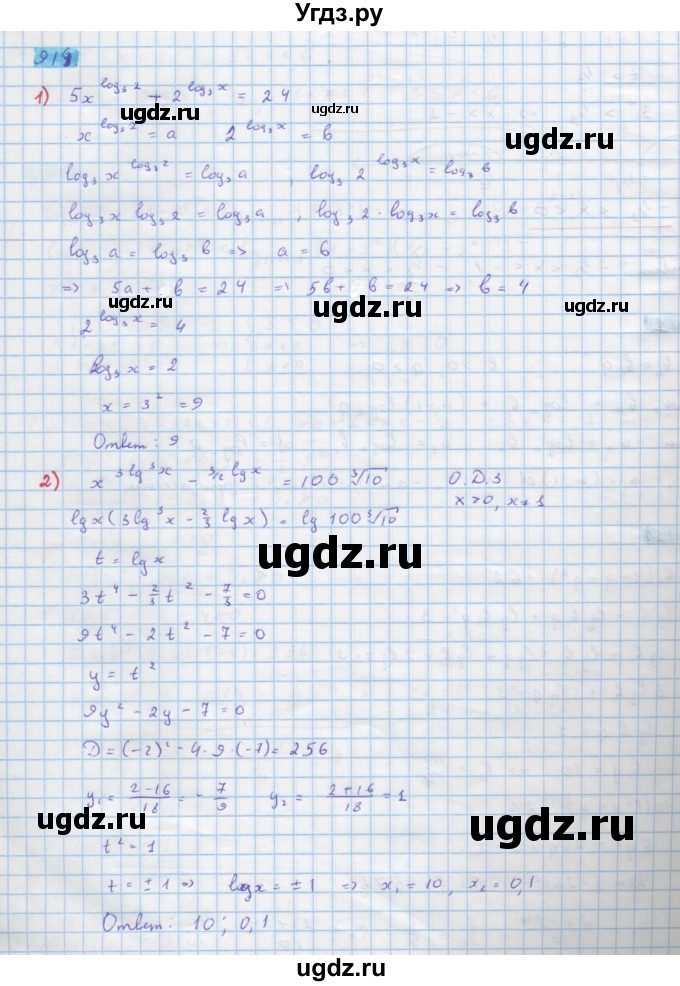 Угдз.ру
919
1) 5x^{log₃2} + 2^{log₃x} = 24
ugdz.ru ugdz.ru
x^{log₃2} = a 2^{log₃x} = b
log₃x^{log₃2} = log₃a , log₃2^{log₃x} = log₃b
log₃x log₃2 = log₃a , log₃2 · log₃x = log₃b
log₃a = log₃b => a = b
=> 5a + b = 24 => 5b + b = 24 => b = 4
ugdz.ru ugdz.ru
2^{log₃x} = 4
log₃x = 2
x = 3² = 9
Ответ: 9
ugdz.ru
2) x^{3lg³x - 3/2 lgx} = 100∛10 О.Д.З
x>0, x≠1
lgx(3lg³x - 2/3 lgx) = lg100∛10
ugdz.ru
t = lgx
3t⁴ - 2/3 t² - 7/3 = 0
9t⁴ - 2t² - 7 = 0
ugdz.ru
y = t²
9y² - 2y - 7 = 0
D = (-2)² - 4·9·(-7) = 256
y₁ = (2-16)/18 = -7/9 y₂ = (2+16)/18 = 1
ugdz.ru ugdz.ru
t² = 1
t = ±1 => lgx = ±1 => x₁ = 10, x₂ = 0,1
Ответ: 10; 0,1
ugdz.ru
ugdz.ru